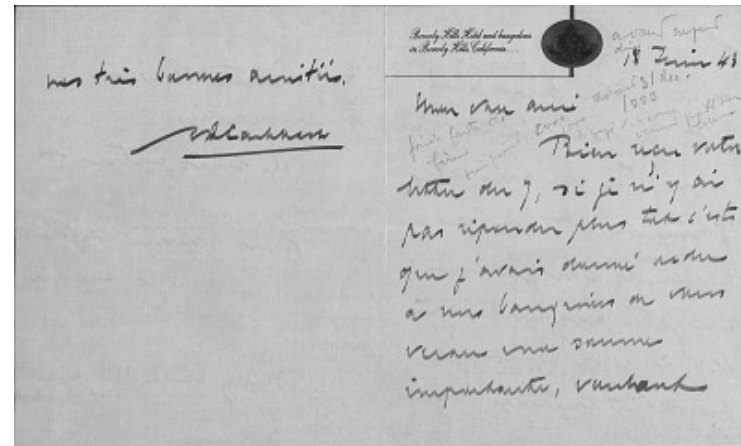 mes très bonnes amitiés.
Beverly Hills Hotel and bungalows
in Beverly Hills, California
18 Juin 48
Mon cher ami
Bien reçu votre
lettre du 7, si je n'y ai
pas répondu plus tôt c'est
que j'avais donné ordre
à mes banquiers de vous
verser une somme
importante, voulant